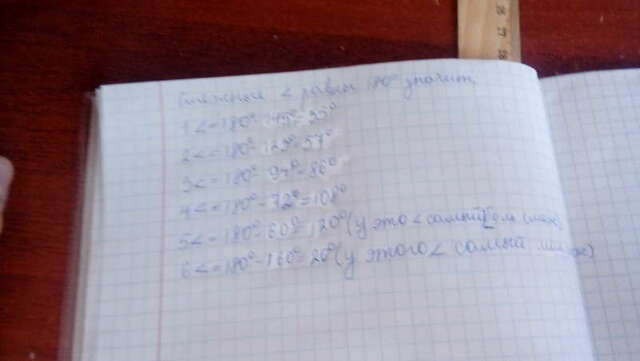 Смежные < равны 180° значит
1<=180°-145°=35°
2<=180°-123°=57°
3<=180°-94°=86°
4<=180°-72°=108°
5<=180°-60°=120° (у это < самый
6<=180°-160°=20° (у этого < самый